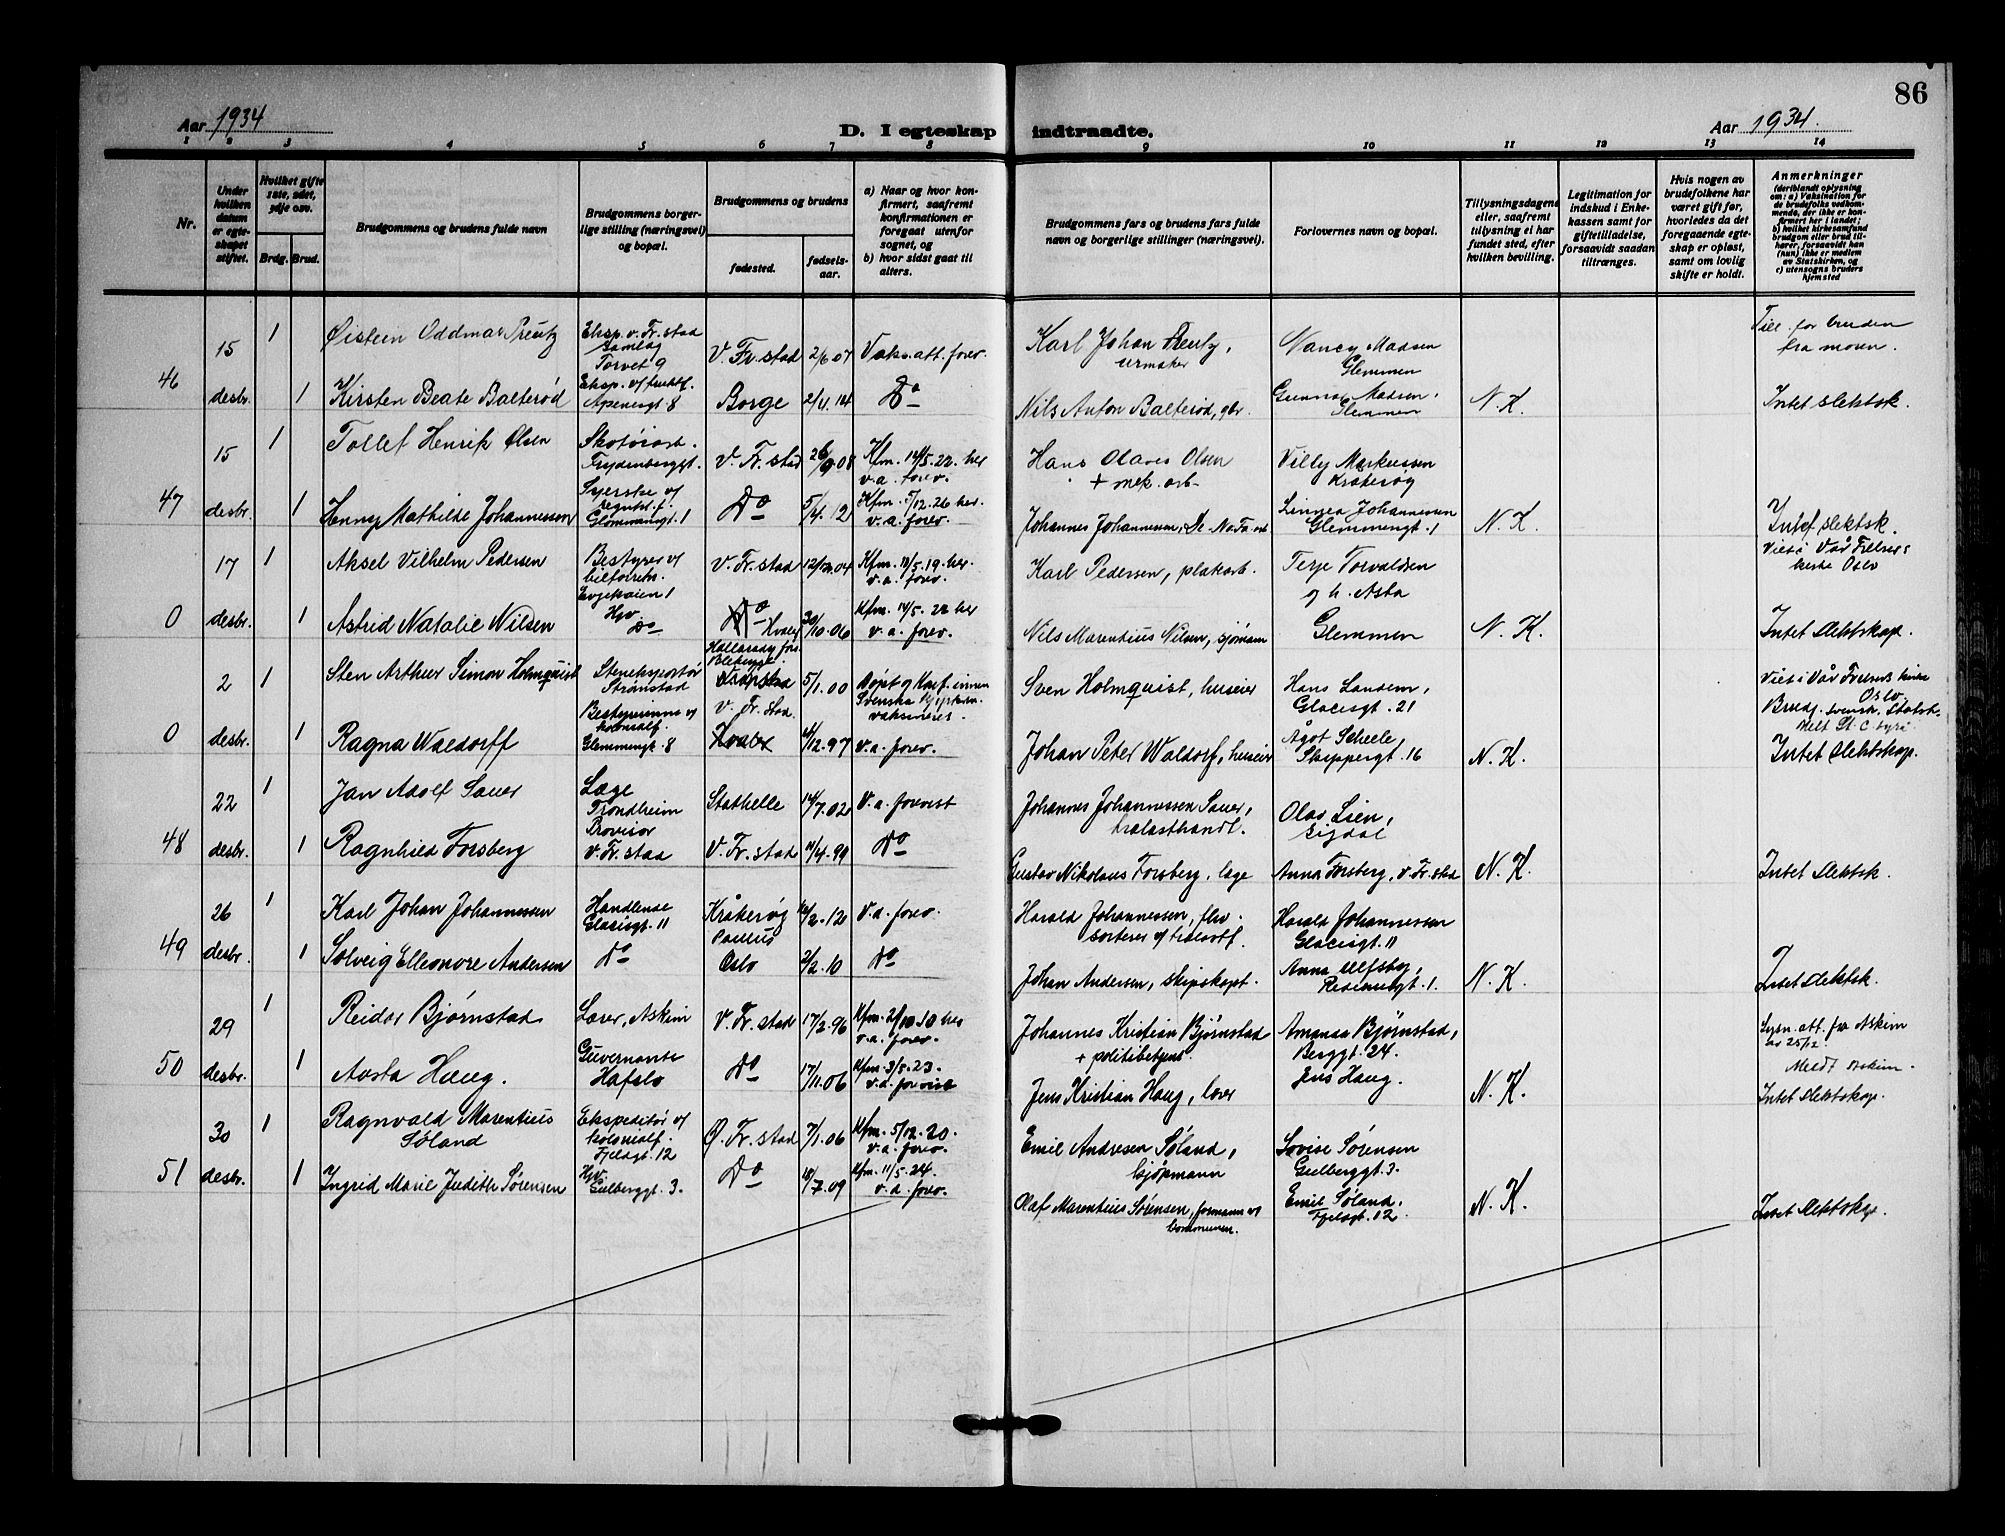 86
Aar 1934
D. I egteskap indtraadte.
Aar 1934.
1 2 3 4 5 6 7 8 9 10 11 12 13 14
Nr.
Under hvilken datum er egteskapet stiftet.
Hvilket gifte 1ste, 2det, 3dje osv.
Brdg. Brud.
Brudgommens og brudens fulde navn
Brudgommens borgerlige stilling (næringsvei) og bopæl.
Brudgommens og brudens
fødested.
fødselsaar.
a) Naar og hvor konfirmert, saafremt konfirmationen er foregaat utenfor sognet, og
b) hvor sidst gaat til alters.
Brudgommens fars og brudens fars fulde navn og borgerlige stillinger (næringsvei).
Forlovernes navn og bopæl.
Tillysningsdagene eller, saafremt tillysning ei har fundet sted, efter hvilken bevilling.
Legitimation for indskud i Enkekassen samt for giftetilladelse, forsaavidt saadan tiltrænges.
Hvis nogen av brudefolkene har været gift før, hvorledes da det foregaaende egteskap er opløst, samt om lovlig skifte er holdt.
Anmerkninger
(deriblandt oplysning om: a) Vaksination for de brudefolks vedkommende, der ikke er konfirmert her i landet; b) hvilket kirkesamfund brudgom eller brud tilhører, forsaavidt han (hun) ikke er medlem av Statskirken, og c) utensogns bruders hjemsted
46
15 desbr.
1
Øistein Oddmar Preutz
Eksp. v. Fr.stad Samlag
Torvet 9
V. Fr.stad 2/6 07 Vaks.att. forev.
Karl Johan Preutz, urmaker
Nancy Madsen
Glemmen
Till. for bruden fra moren.
1
Kirsten Beate Balterød
Apenesgt. 8
Borge 2/11.14 Do
Nils Anton Balterød, gbr.
Gunnar Madsen,
Glemmen
N. K.
Intet slektsk.
47
15 desbr.
1
Tollef Henrik Olsen
Skotøiarb.
Frydenberggt.
V. Fr.stad 26/9.08 Kfm. 14/5.22. her
v.a. forev.
Hans Olaves Olsen
+ mek. arb.
Villy Markussen
Kråkerøy
1
Henny Mathilde Johannessen
Syerske
Glommengt. 1
Do 5/4.12 Kfm. 5/12.26 her.
v.a. forev.
Johannes Johannessen,
Linnea Johannessen
Glemmengt. 1
N. K.
Intet slektsk.
0
17 desbr.
1
Aksel Vilhelm Pedersen
Bestyrer
Evjekaien 1
V. Fr.stad 12/12.04 Kfm. 18/5.19. her.
v.a. forev.
Karl Pedersen, platearb.
Terje Torvaldsen
og h. Asta
Viet i Vår Frelsers kirke Oslo
1
Astrid Natalie Nilsen
Do
Do Hvaler 30/10.06 Kfm. 14/5.22 her
v.a. forev.
Nils Marentius Nilsen, sjømann
Glemmen
N. K.
Intet slektskap.
0
2 desbr.
1
Sten Arthur Simon Holmquist
Steneksportør
Strømstad
5/1.00 Døpt og konf. innen Svenska Kyrkan.
Sven Holmquist, huseier
Hans Landem,
Glacisgt. 21
Viet i Vår Frelsers kirke Oslo.
Brudg. svensk. Statsb.
1
Ragna Waldorff
Bestyrerinne
Glemmengt. 8
V. Fr.stad.
Hvaler
12.97 v.a. forev.
Johan Peter Waldorf, huseier
Ågot Scheele,
Skippergt. 16
N. K.
Intet slektskap.
48
22 desbr.
1
Jan Adolf Sauer
Læge
Trondheim
Stathelle 14/7.02 v.a. forevist
Johannes Johannessen Sauer, trælasthandl.
Olav Lien,
Sigdal
1
Ragnhild Forsberg
Provisor
V. Fr.stad
V. Fr.stad 11/4.99 Do
Gustav Nikolaus Forsberg, læge
Anna Forsberg, V. Fr.stad
N. K.
Intet slektsk.
49
26 desbr.
1
Karl Johan Johannessen
Handlende
Glacisgt. 11
Kråkerøy 12.12 v.a. forev.
Harald Johannessen,
Harald Johannessen
Glacisgt. 11
1
Solveig Elleonore Andersen
Do
Paulus
Oslo 2/2.10 Do
Johan Andersen, skipskapt.
Anna Ulfsby,
N. K.
Intet slektsk.
50
29 desbr.
1
Reidar Bjørnstad
Lærer, Askim
V. Fr.stad 17/2.96 Kfm. 2/10.10 her
v.a. forev.
Johannes Kristian Bjørnstad
+ politibetjent.
Amanda Bjørnstad,
Berggt. 24.
Lysn. att. fra Askim av 25/12.
Meldt Askim.
1
Aasta Haug.
Guvernante
Hafslo
Do 17/11.06 Kfm. 3/5.23.
v.a. forevist
Jens Kristian Haug, lærer
Jens Haug.
N. K.
Intet slektskap.
51
30 desbr.
1
Ragnvald Marentius Søland
Ekspeditør v/ kolonialf.
Fjeldgt. 12
Ø. Fr.stad 7/1.06 Kfm. 5/12.20.
v.a. forev.
Emil Andresen Søland, kjøpmann
Lovise Sørensen
Gulberggt. 3.
1
Ingrid Marie Judith Sørensen
Gulberggt. 3.
Do 18/7.09 Kfm. 11/5.24.
v.a. forev.
Olaf Marentius Sørensen, formann v/ kommunen.
Emil Søland,
Fjeldgt. 12.
N. K.
Intet slektskap.